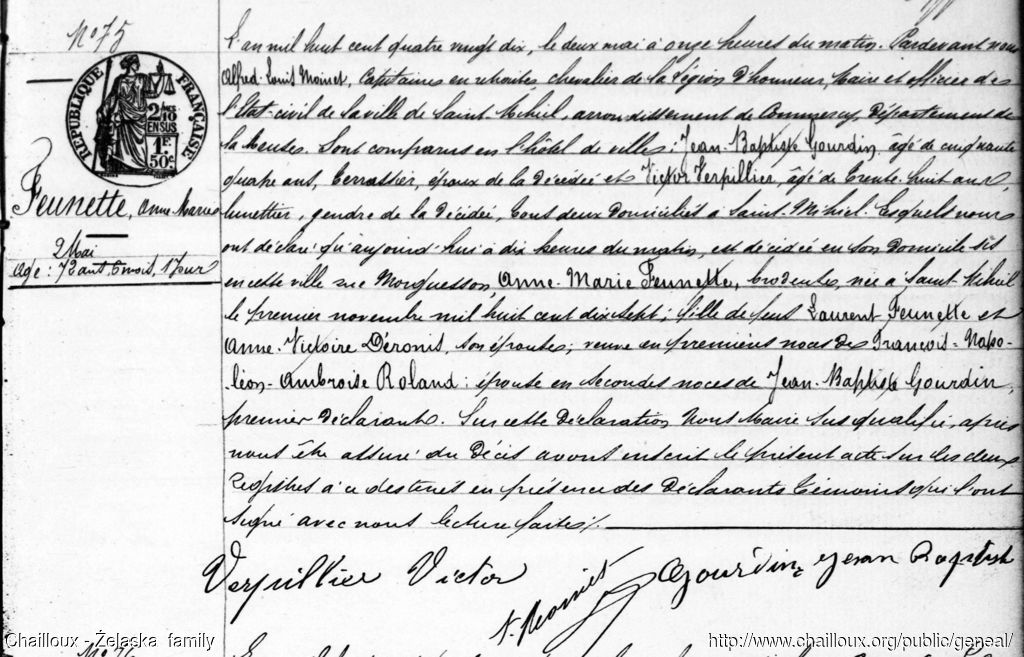 No 75
RÉPUBLIQUE FRANÇAISE
2/10 EN SUS
1F. 50c
Feunette, Anne-Marie
2 Mai
Age: 72 ans, 6 mois, 1 Jour
L'an mil huit cent quatre vingt dix, le deux mai à onze heures du matin. Pardevant nous
Alfred-Louis Moinet, Capitaine en retraite, chevalier de la Légion d'honneur, Maire et officier de
l'Etat-civil de la ville de Saint-Mihiel, arrondissement de Commercy, Département de
la Meuse. Sont comparus en l'hôtel de ville: Jean-Baptiste Gourdin, âgé de cinquante
quatre ans, terrassier, époux de la décédée et Victor Verpillier, âgé de trente-huit ans,
lunettier, gendre de la décédée, tous deux domiciliés à Saint-Mihiel. Lesquels nous
ont déclaré qu'aujourd'hui à dix heures du matin, est décédée en son domicile sis
en cette ville rue Morguesson, Anne-Marie Feunette, brodeuse, née à Saint-Mihiel
le premier novembre mil huit cent dix sept; fille de feus Laurent Feunette et
Anne-Victoire Déronis, son épouse; veuve en premières noces de François-Napo-
-léon-Ambroise Roland: épouse en secondes noces de Jean-Baptiste Gourdin,
premier déclarant. Sur cette déclaration Nous Maire susqualifié, après
nous être assuré du décès avons inscrit le présent acte sur les deux
Registres à ce destinés en présence des déclarants témoins qui l'ont
signé avec nous lecture faite.
Verpillier Victor
A. Moinet
Gourdin Jean Baptiste
Chailloux - Żelaska family
http://www.chailloux.org/public/geneal/
No 76